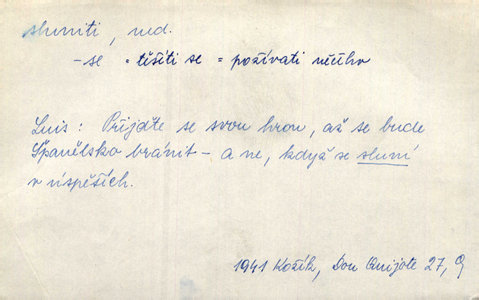 sluniti, ned.
-se = těšíti se = požívati něčeho
Luis: Přijďte se svou hrou, až se bude
Španělsko bránit - a ne, když se sluní
v úspěších.
1941 Kožík, Don Quijote 27, 9